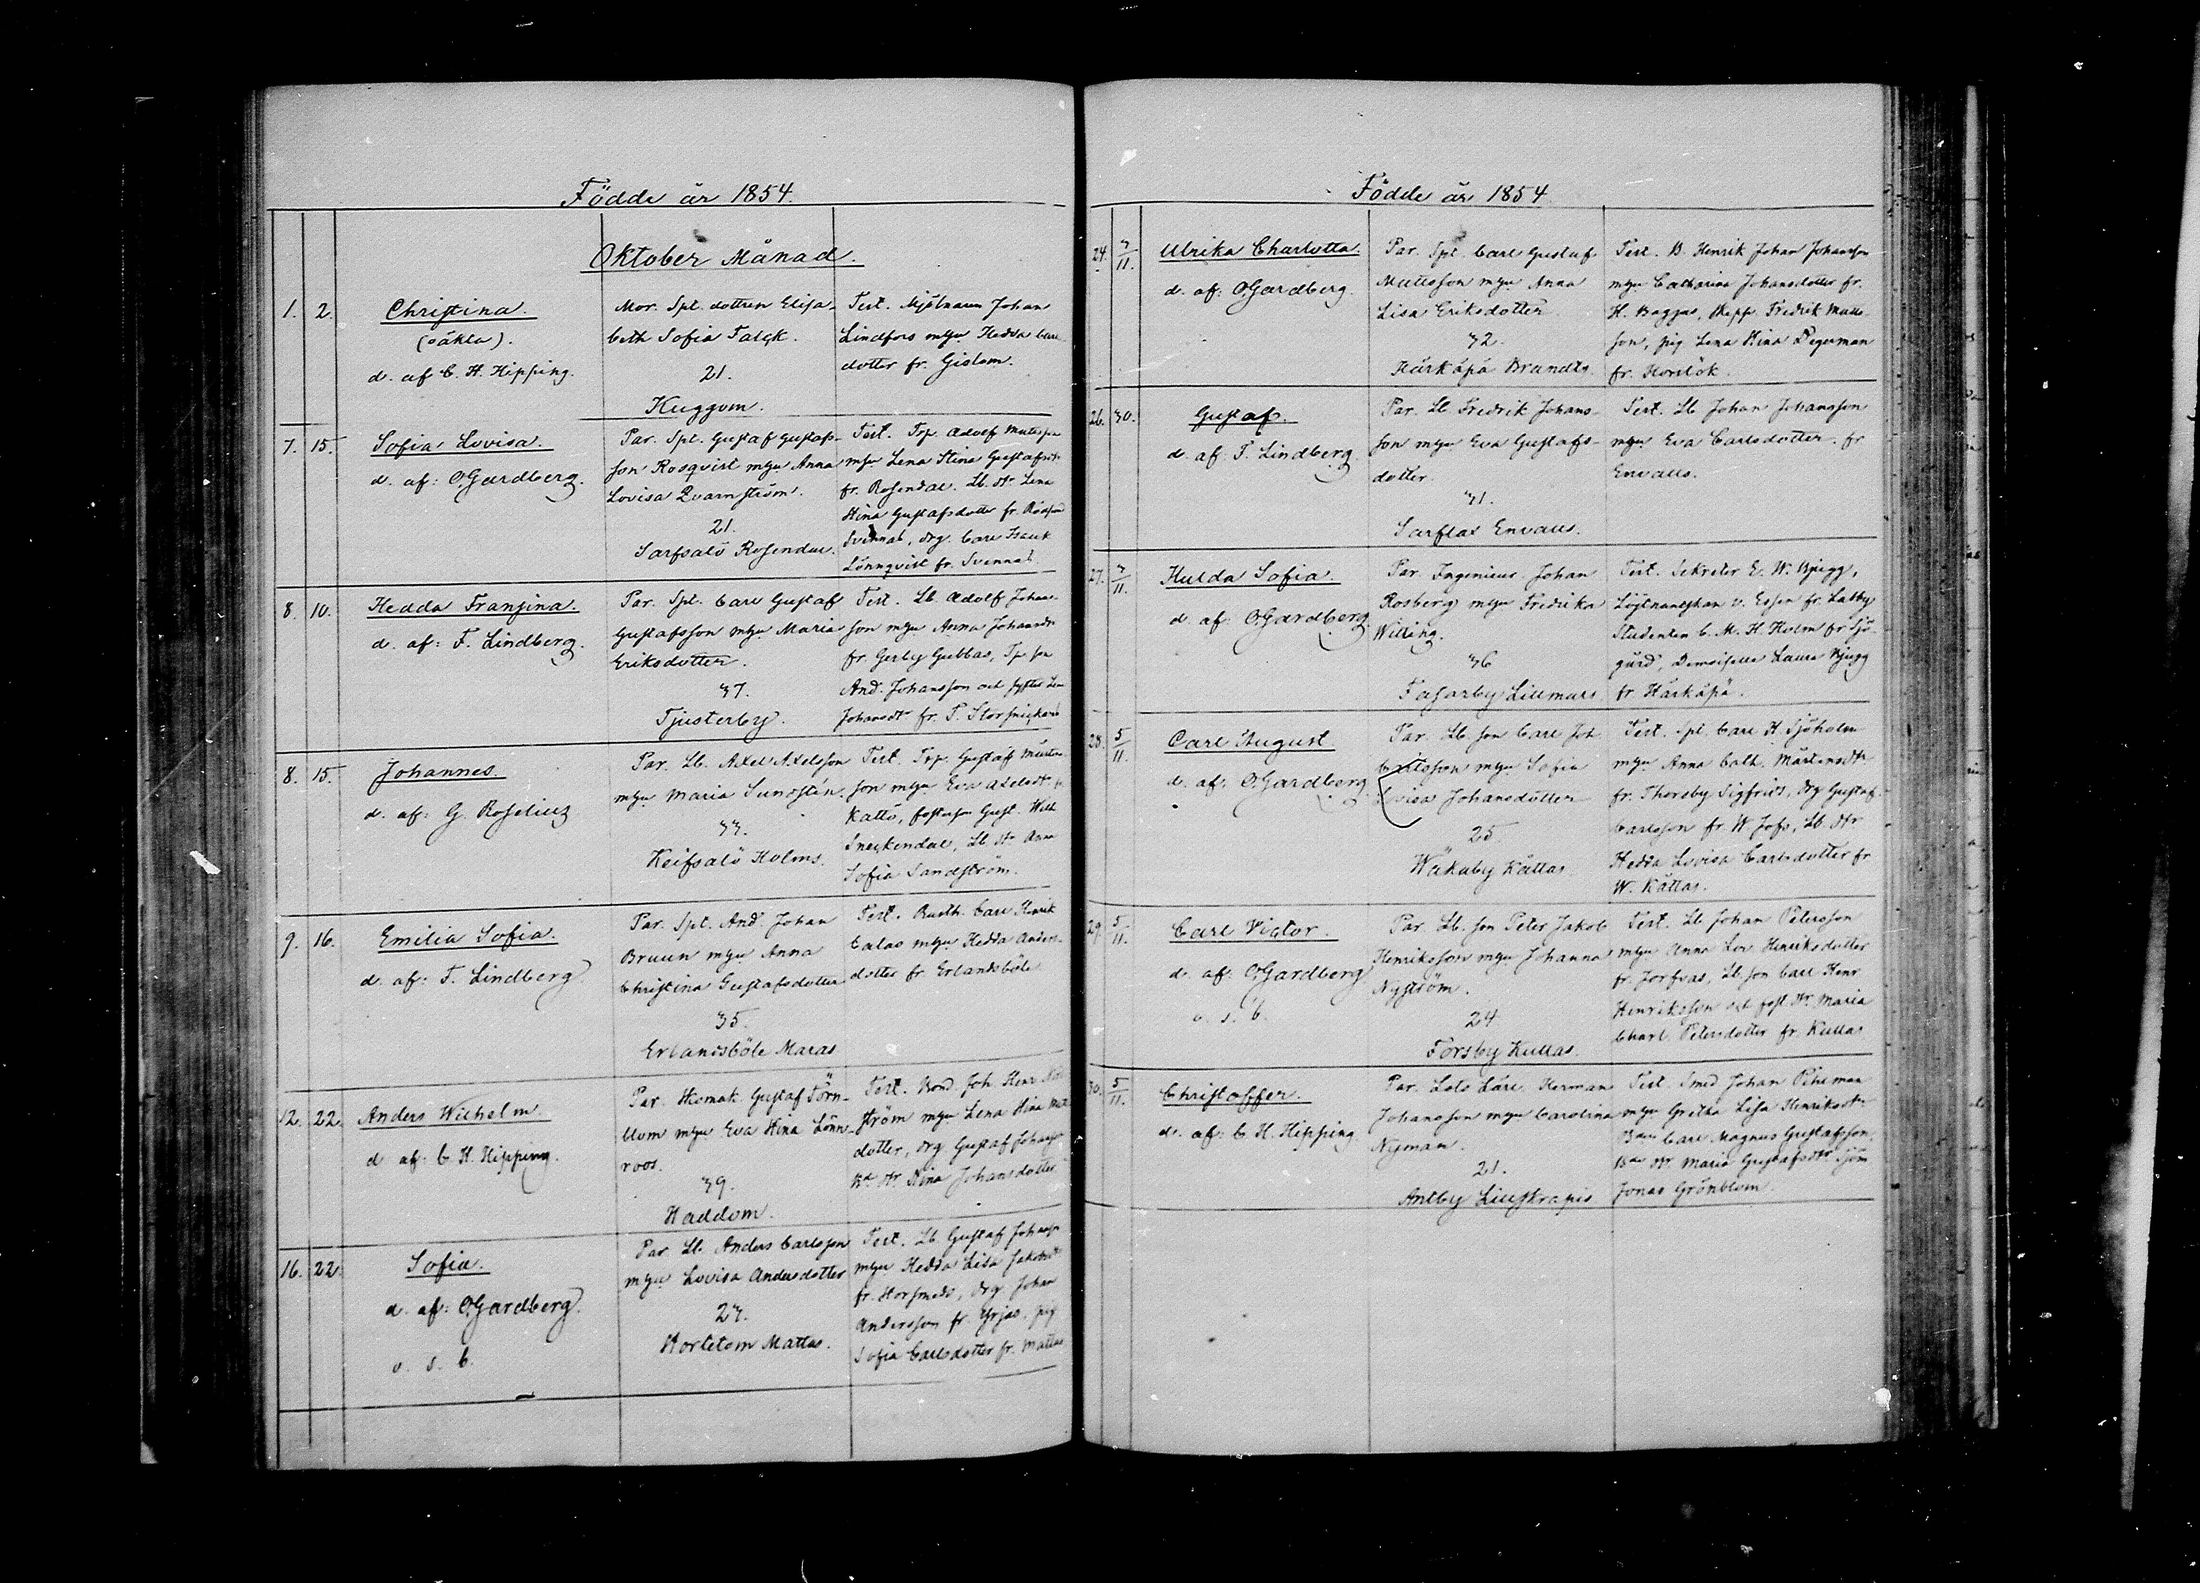 Födde år 1854.
Oktober Månad.
1. 2. Christina.
(oäkta).
d. af C. H. Hipping.
Mor. Spl. dottren Elisa-
beth Sofia Falck.
21.
Kuggom.
Test. Mjölnaren Johan
Lindfors m hu Hedda Carls
dotter fr. Gislom.
7. 15. Sofia Lovisa.
d. af: O. Gardberg.
Par. Spl. Gustaf Gustafs-
son Rosqvist m hu Anna
Lovisa Qvarnström.
21.
Sarfsalö Rosendal.
Test. Trp. Adolf
m hu Lena Stina Gustafsdr
fr. Rosendal. Lb. dr Lena
Stina Gustafsdotter fr.
Svennas, drg. Carl Isack
Lönnqvist fr. Svennas
8. 10. Hedda Fransina.
d. af: F. Lindberg.
Par. Spl. Carl Gustaf
Gustafsson m hu Maria
Eriksdotter.
37.
Tjusterby.
Test. Lb. Adolf Johans
son m hu Anna Johansdr
fr. Gerby Gubbas,
And. Johansson och syster Lena
Johansdr fr. T. Storsnickers
8. 15. Johannes.
d. af: G. Roselius
Par. Lb. Axel Axelsson
m hu Maria Sundstén.
33.
Keifsalö Holms.
Test. Trp. Gustaff Mårtens
son m hu Eva Axelsdr fr
Kattö, Gust. Wilh
Sneckendal, Lb. dr Anna
Sofia Sandström.
9. 16. Emilia Sofia.
d. af: F. Lindberg
Par. Spl. And. Johan
Bruun m hu Anna
Christina Gustafsdotter
35.
Erlandsböle Maras
Test. Carl Henrik
Calas m hu Hedda Anders-
dotter fr Erlandsböle
12. 22. Anders Wilhelm
d. af: C. H. Hipping.
Par. Skomak. Gustaf Törn-
blom m hu Eva Stina Lönn-
roos.
39.
Haddom.
Test. Bond. Joh. Henr.
ström m hu Lena Stina
dotter, drg Gustaf Johansson
Bde dr Stina Johansdotter
16. 22. Sofia.
d. af: O. Gardberg.
o. s. b.
Par. Lb. Anders Carlsson
m hu Lovisa Andersdotter
23.
Hortetom Mattas.
Test. Lb. Gustaf Johansson
m hu Hedda Lisa
fr. Storsmeds, drg Johan
Andersson fr Yrjas, pig
Sofia Carlsdotter fr. Mattas
Födde år 1854
24. 3/11. Ulrika Charlotta.
d. af: O. Gardberg.
Par. Spl. Carl Gustaf
Mattsson m hu Anna
Lisa Eriksdotter
32.
Härkäpä Brandts.
Test. B. Henrik Johan Johansson
m hu Catharina Johansdotter fr.
H. Baggas, Skepp. Fredrik Matts-
son, pig Lena Stina Degerman
fr. Horslök.
26. 30. Gustaf.
d. af: F. Lindberg.
Par. Lb Fredrik Johans-
son m hu Eva Gustafs-
dotter.
31.
Sarflax Envalls.
Test. Lb Johan Johansson
m hu Eva Carlsdotter. fr
Envalls.
27. 3/11. Hulda Sofia.
d. af: O. Gardberg
Par. Ingenieur Johan
Rosberg m hu Fredrika
Witting.
36
Fasarby Lillmars
Test. Sekreter E. W. Bjugg,
Löjtnantskan v. Essen fr. Labby
Studenten C. M. H. Holm fr Sjö-
gård, Demoiselle Laura Bjugg
fr. Härkäpä.
28. 5/11. Carl August
d. af: O. Gardberg
Par. Lb. son Carl Joh
Carlsson m hu Sofia
Lovisa Johansdotter
25.
Wåkaby Kättas.
Test. Spl. Carl H. Sjöholm
m hu Anna Cath. Mårtensdr
fr. Thorsby Sigfrids, drg Gustaf.
Carlsson fr. W Jofs, Lb. dr
Hedda Lovisa Carlsdotter fr
W. Kättas.
29. 5/11. Carl Victor.
d. af: O. Gardberg
o. s. b.
Par. Lb. son Peter Jakob
Henriksson m hu Johanna
Nyström.
24
Forsby Kullas.
Test. Lb Johan Petersson
m hu Anna Lov. Henriksdotter
fr. Jorfvas, Lb. son Carl Henr.
Henriksson och fost. dr. Maria
Charl. Petersdotter fr. Kullas
30. 5/11. Christoffer.
d. af: C. H. Hipping.
Par. Herman
Johansson m hu Carolina
Nyman.
21.
Antby Liuskrapis
Test. Smed Johan Pihlman
m hu Gretha Lisa Henriksdr
Bson Carl Magnus Gustafsson,
Bde dr Maria Gustafsdr, sjöm
Jonas Grönblom.